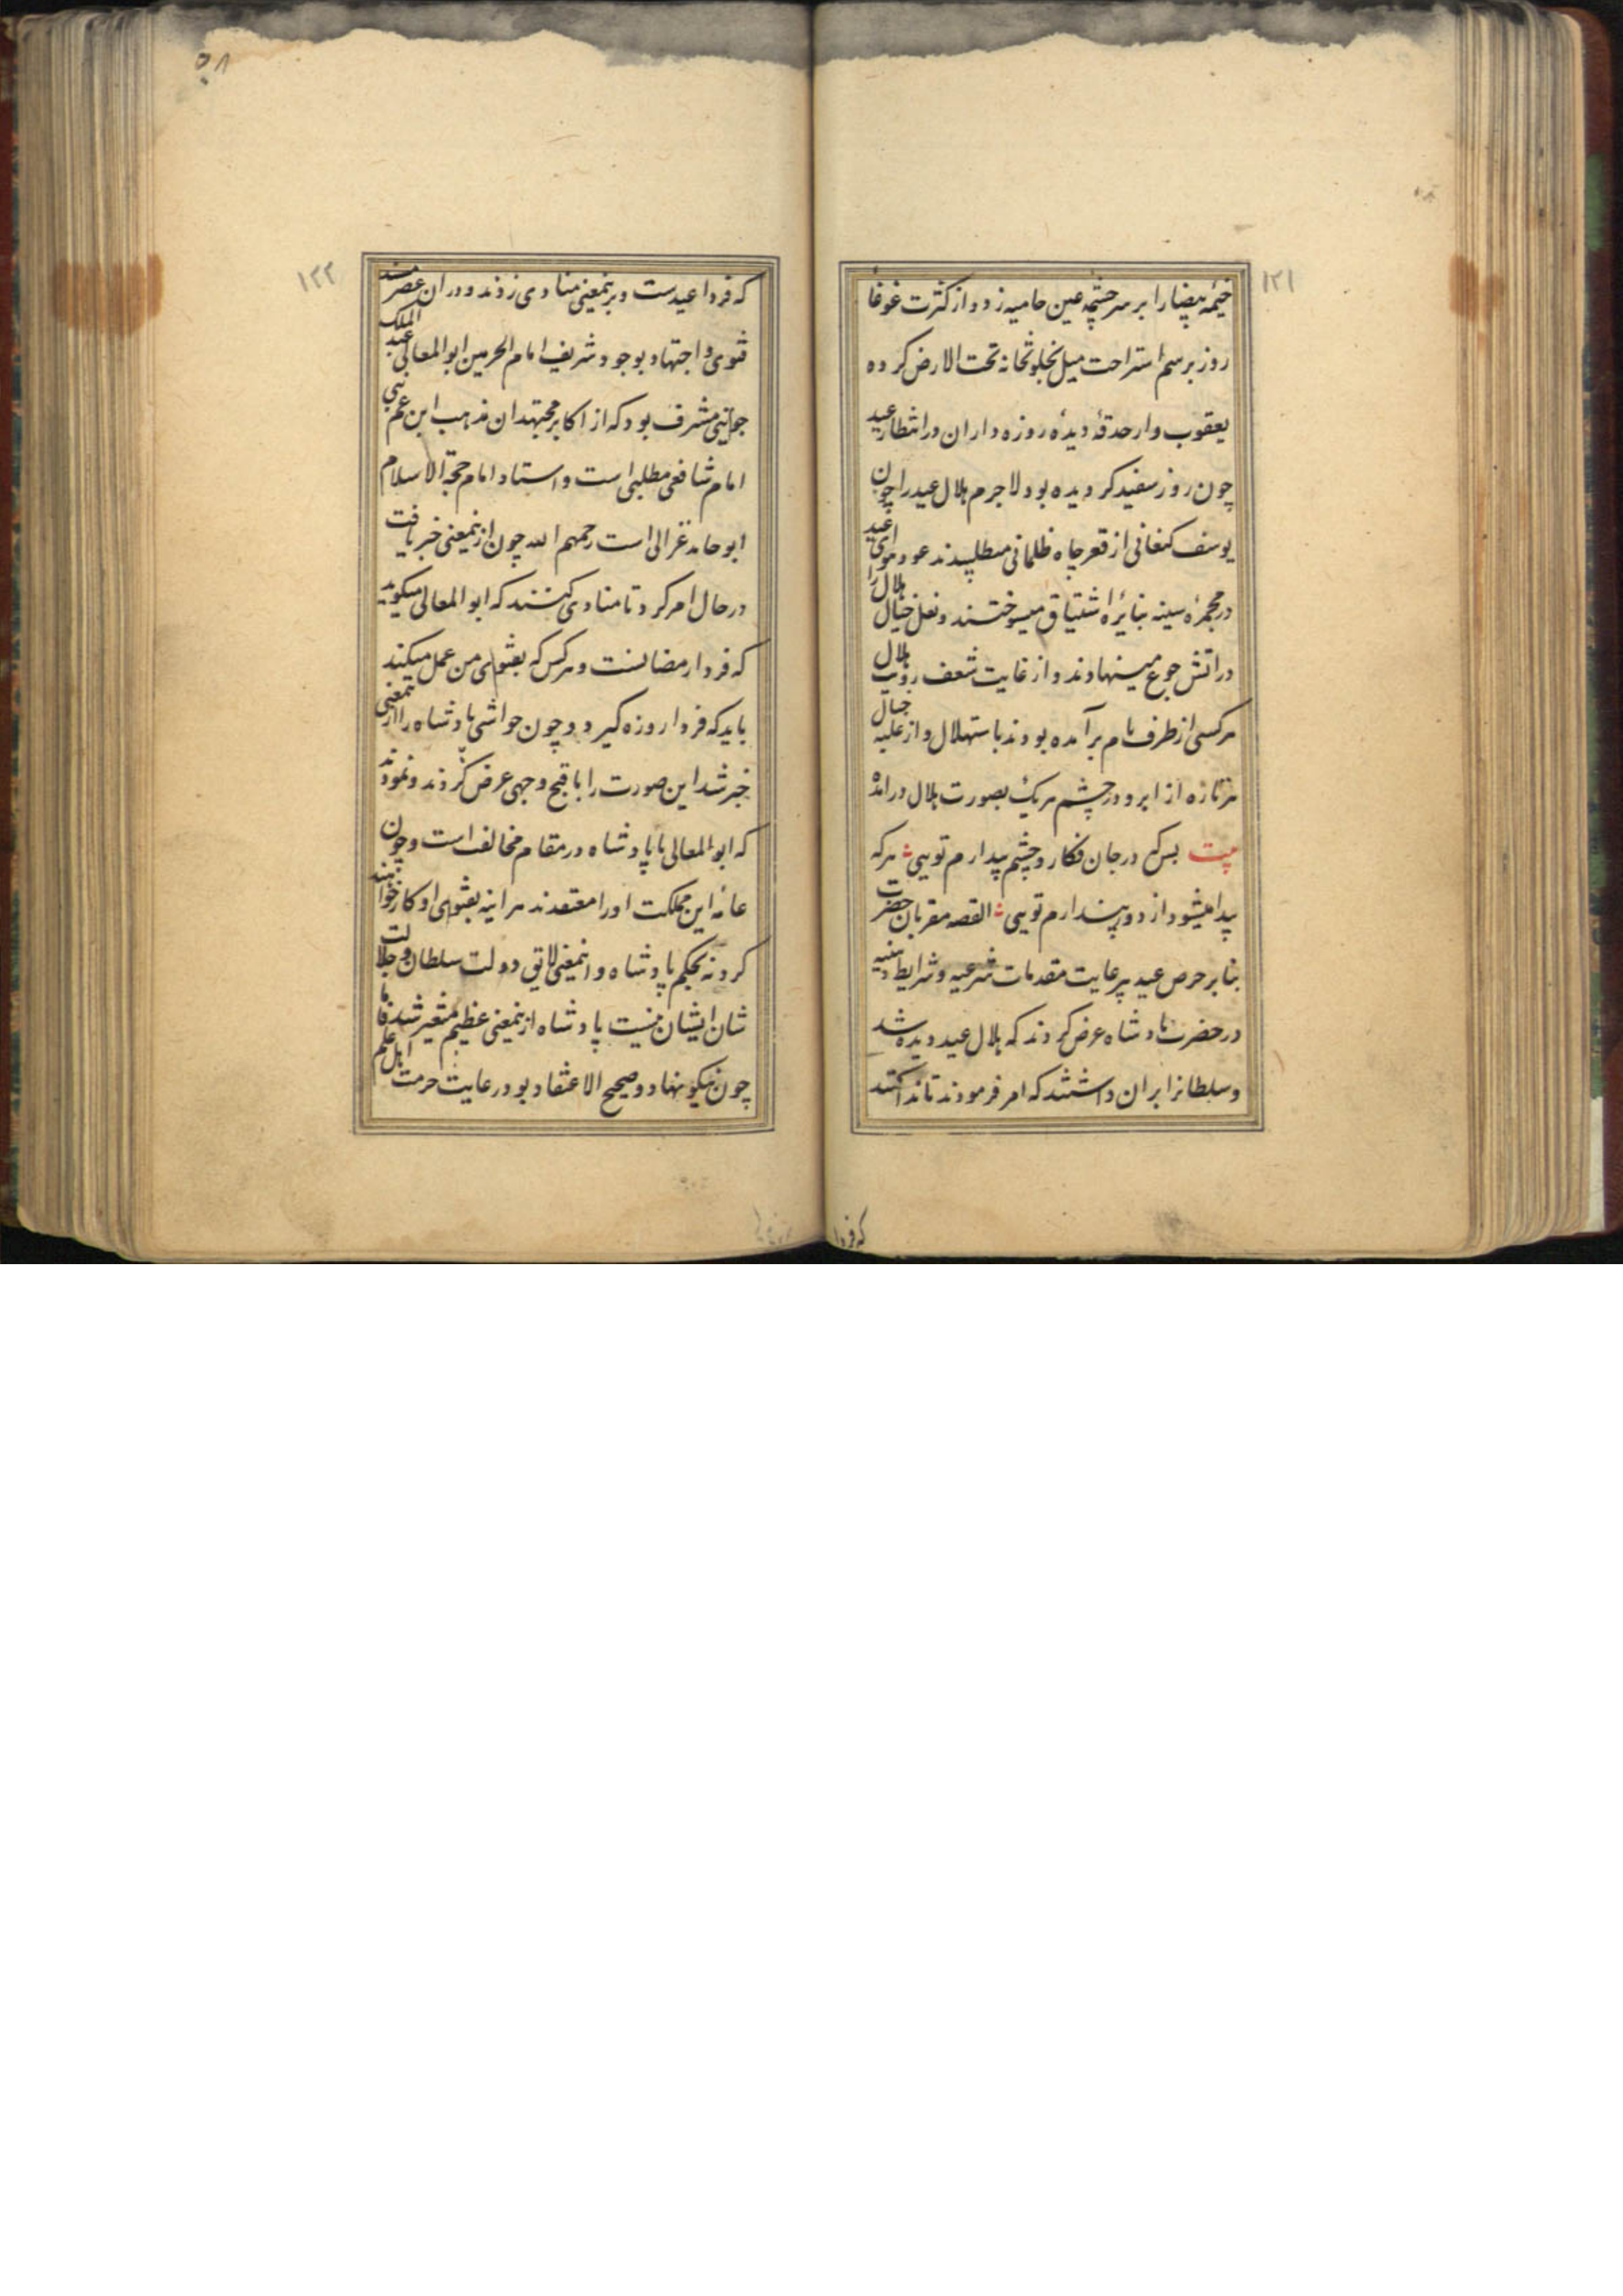 ۱۲۱
خیمه بیضا را بر سر چشمه عین حامیه زد و از کثرت غوغا
روز برسم استراحت میل بخلوتخانه تحت الارض کرده
یعقوب وار حدقهٔ دیدهٔ روزه داران در انتظار عید
چون روز سفید کردیده بود لاجرم هلال عید را چون
یوسف کنعانی از قعر چاه ظلمانی میطلبیدند عود
در مجمرهٔ سینه بنایرهٔ اشتیاق میسوختند و نعل خیال هلال را
در اتش جوع مینهادند و از غایت شعف رویت هلال
هر کسی از طرف بام برآمده بودند باستهلال و از غلبه خیال
هر تازه از ابرو در چشم هر یک بصورت هلال درامده
بیت بس که در جان فکار و چشم بیدارم تویی هر که
پیدا میشود از دور پندارم تویی القصه مقربان حضرت
بنا بر حرص عید بیرعایت مقدمات شرعیه و شرایط دینیه
در حضرت پادشاه عرض کردند که هلال عید دیده شد
و سلطانرا بران داشتند که امر فرمودند تا ندا کنند
که فردا
۵۸
۱۲۲
که فردا عیدست و برینمعنی منادی زدند و دران عصر مسند
فتوی و اجتهاد بوجود شریف امام الحرمین ابو المعالی عبد الملک
جوینی مشرف بود که از اکابر مجتهدان مذهب ابن عم نبی
امام شافعی مطلبی است و استاد امام حجة الاسلام
ابو حامد غزالی است رحمهم الله چون ازینمعنی خبر یافت
در حال امر کرد تا منادی کنند که ابو المعالی میکوید
که فردا رمضانست و هر کس که بفتوای من عمل میکند
باید که فردا روزه کیرد و چون حواشی پادشاه را ازینمعنی
خبر شد این صورت را باقبح وجهی عرض کردند و نمودند
که ابو المعالی با پادشاه در مقام مخالف است و چون
عامه این مملکت او را معتقدند هر اینه بفتوای او کار خواهند
کرد نه بحکم پادشاه و اینمعنی لایق دولت سلطان و جلالت
شان ایشان نیست پادشاه ازینمعنی عظیم متغیر شد فاما
چون نیکو نهاد و صحیح الاعتقاد بود رعایت حرمت اهل علم